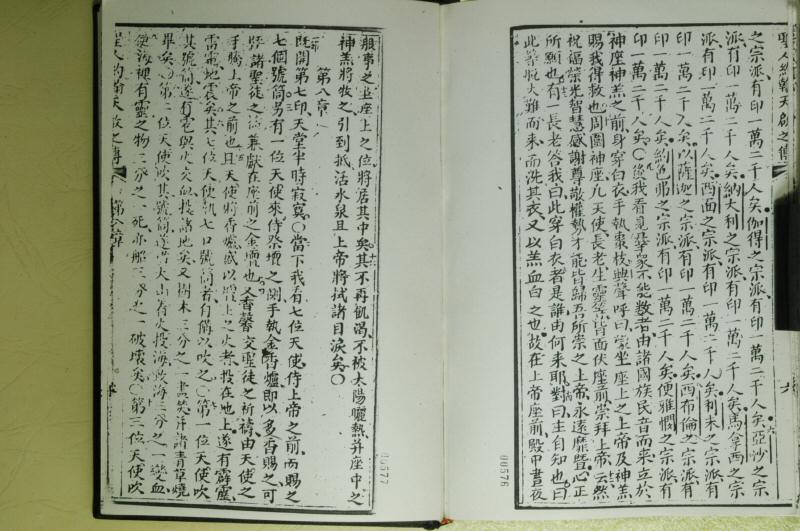 聖人約翰天啟之傳
之宗派有印一萬二千人矣伽得之宗派有印一萬二千人矣亞沙之宗
派有印一萬二千人矣納大利之宗派有印一萬二千人矣馬拿西之宗
派有印一萬二千人矣西面之宗派有印一萬二千人矣利未之宗派有
印一萬二千人矣以薩迦之宗派有印一萬二千人矣西布倫之宗派有
印一萬二千人矣約色弗之宗派有印一萬二千人矣便雅憫之宗派有
印一萬二千人矣〇後我看見羣衆不能數者由諸國族民音而來立於
神座神羔之前身穿白衣手執棗枝興聲呼曰蒙坐座上之上帝及神羔
賜我得救也周圍神座凡天使長老生靈等皆面伏座前崇拜上帝云然
祝福榮光智慧感謝尊敬權勢才能皆歸吾所崇之上帝永遠靡曁心正
所願也有一長老答我曰此穿白衣者是誰由何來耶對曰主自知也曰
此等脫大難而來而洗其衣又以羔血白之也故在上帝座前殿中晝夜
00576
服事之坐座上之位將居其中矣其不再飢渴不被太陽曬熱并座中之
神羔將牧之引到抵活水泉且上帝將拭諸目淚矣〇
第八章
既開第七印天堂半時寂寞〇當下我看七位天使侍上帝之前而賜之
七個號筒另有一位天使來侍祭壇之側手執金香爐即以多香賜之可
諸聖徒之 兼獻在座前之金壇也又香馨交聖徒之祈禱由天使之
手騰上帝之前也且天使將香爐盛以壇上之火者投在地上遂有霹靂
雷電地震矣其七位天使執七口號筒者自備以吹之〇第一位天使吹
其號筒遂有雹與火交血投諸地矣又樹木三分之一盡焚并諸青草燒
畢矣第二位天使吹其號筒遂若大山着火投海致海三分之一變血
海裡有靈之物三分之一死亦船三分之一破壞矣〇第三位天使吹
聖人約翰天啟之傳 第八章
00577